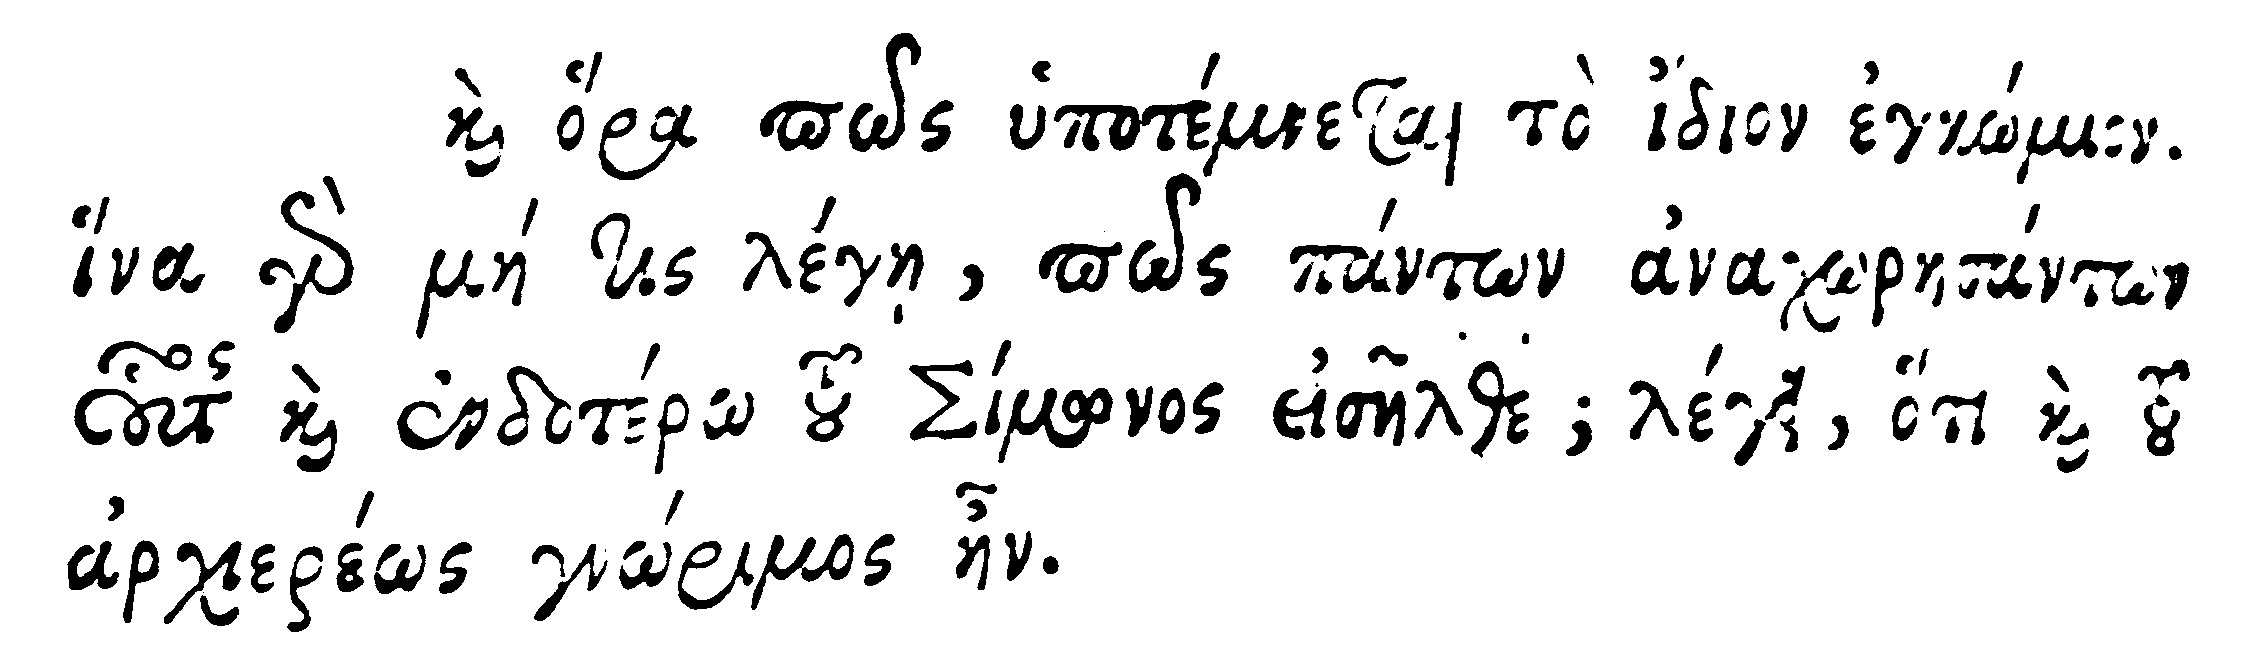 καὶ ὅρα πῶς ὑποτέμνεται τὸ ἴδιον ἐγκώμιον.
ἵνα γὰρ μή τις λέγῃ, πῶς πάντων ἀναχωρησάντων
οὗτος καὶ ἐνδοτέρω τοῦ Σίμωνος εἰσῆλθε; λέγει, ὅτι καὶ τοῦ
ἀρχιερέως γνώριμος ἦν.